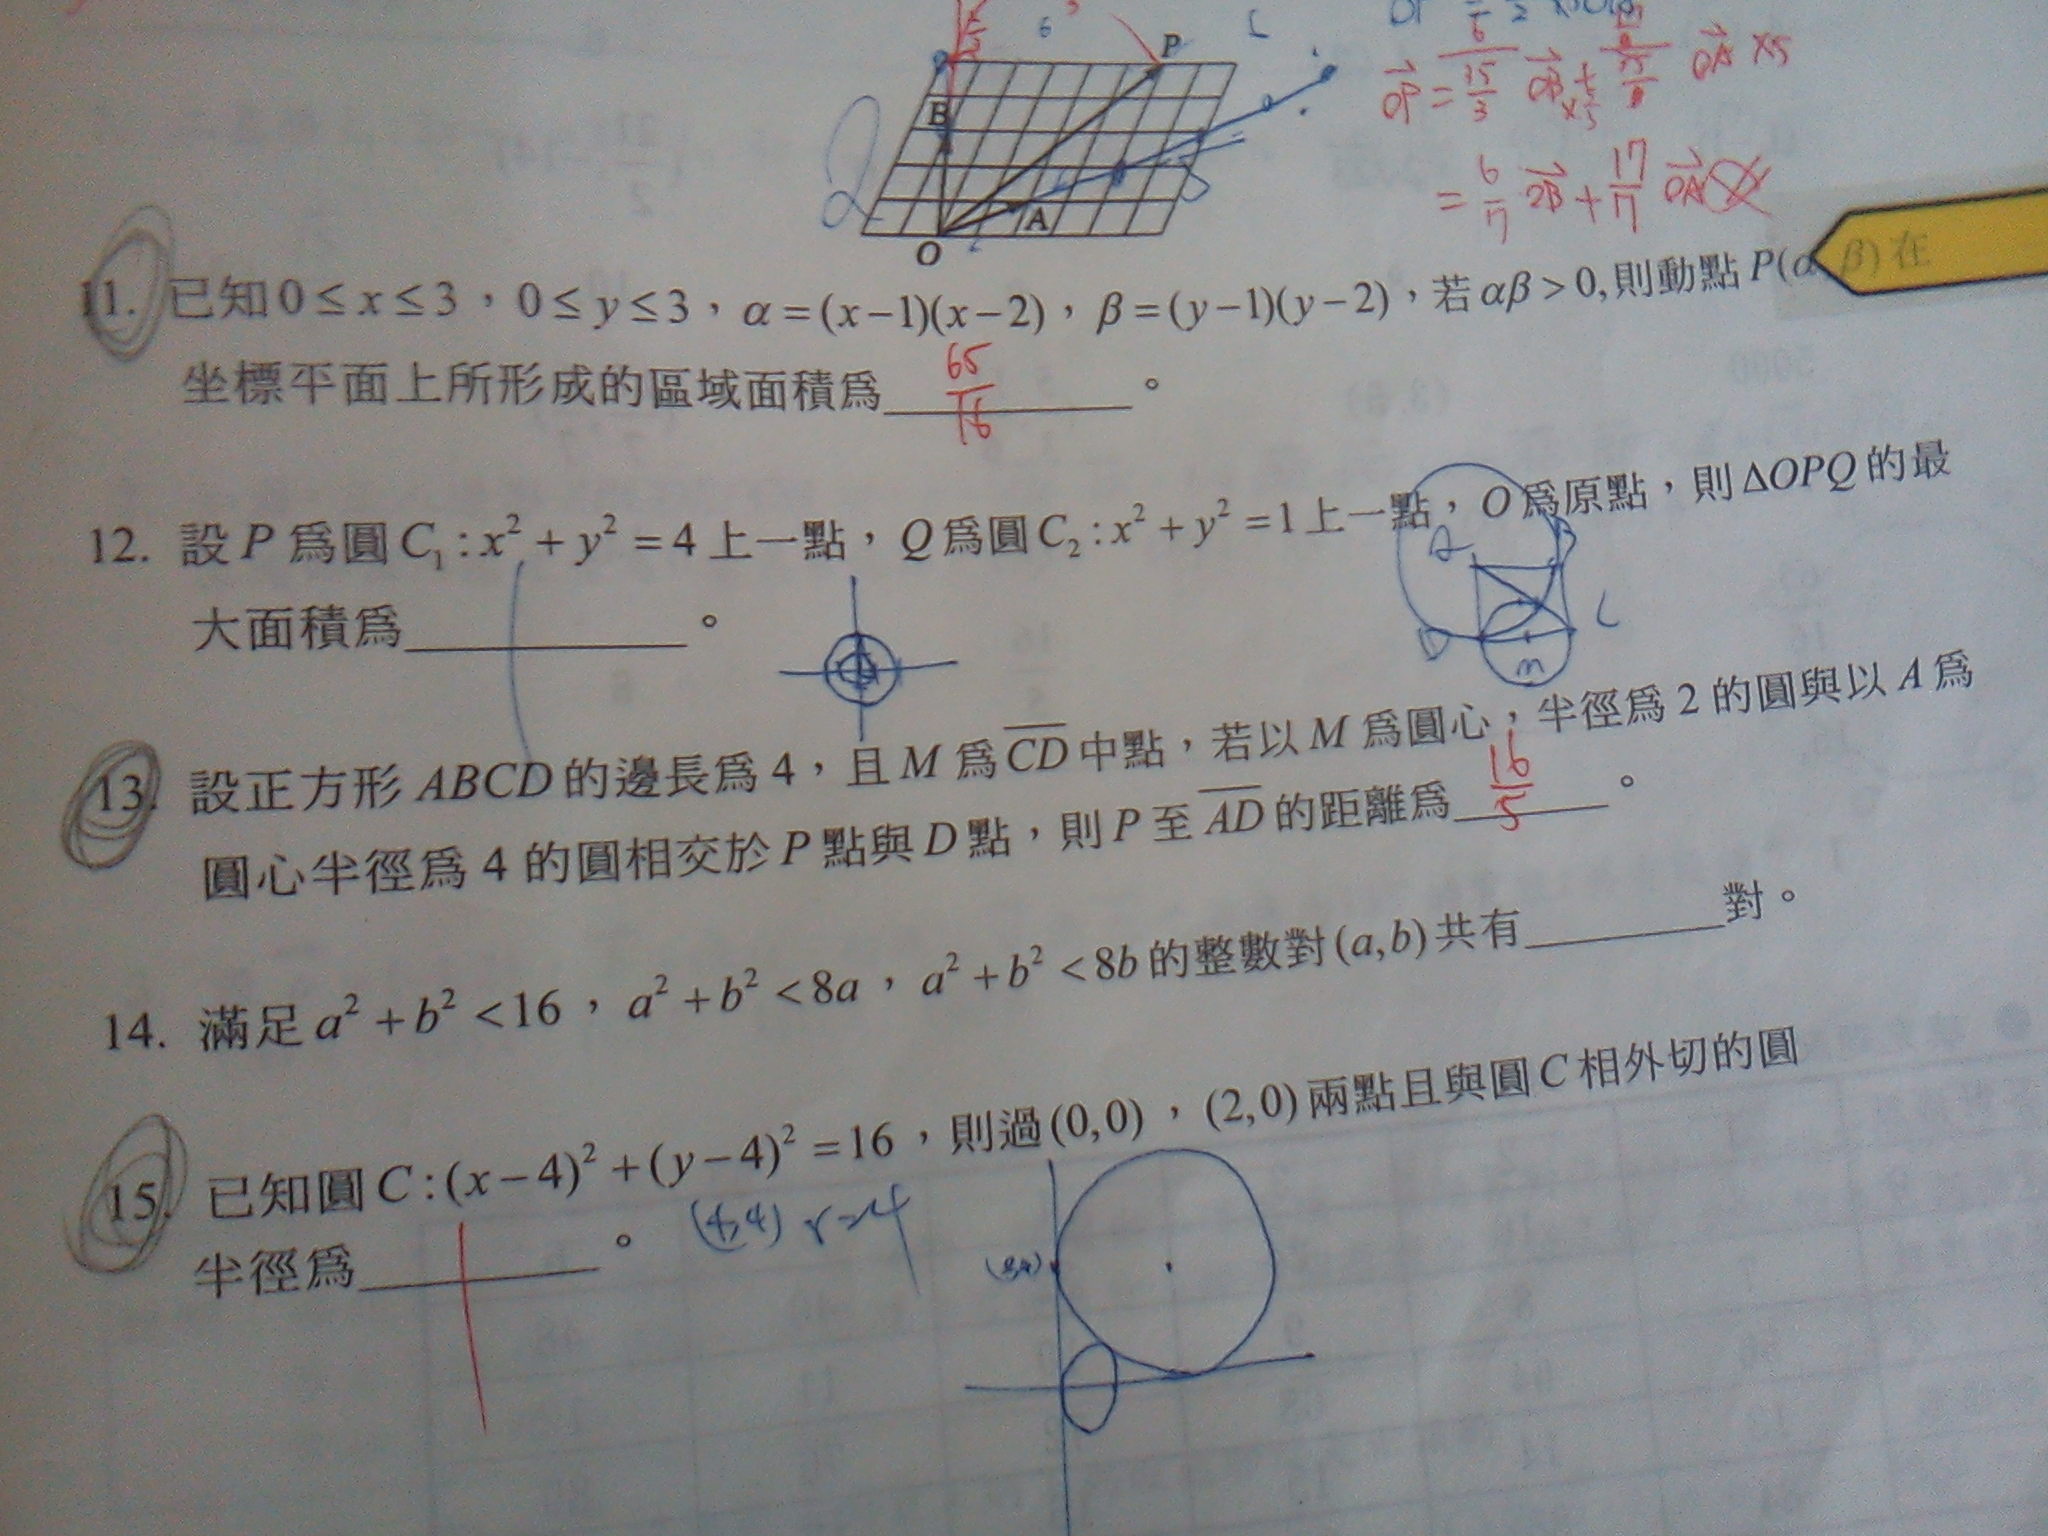 P
B
A
O
OP = 6/(15/3) OB ×5 + OA ×5
= 6/17 OB + 17/17 OA
11. 已知 0 ≤ x ≤ 3，0 ≤ y ≤ 3，α = (x−1)(x−2)，β = (y−1)(y−2)，若 αβ > 0, 則動點 P(α β) 在
坐標平面上所形成的區域面積為 65/16 。
12. 設 P 為圓 C₁ : x² + y² = 4 上一點，Q 為圓 C₂ : x² + y² = 1 上一點，O 為原點，則 ΔOPQ 的最
大面積為______。
D
m
13. 設正方形 ABCD 的邊長為 4，且 M 為 CD 中點，若以 M 為圓心，半徑為 2 的圓與以 A 為
圓心半徑為 4 的圓相交於 P 點與 D 點，則 P 至 AD 的距離為 16/5 。
14. 滿足 a² + b² < 16，a² + b² < 8a，a² + b² < 8b 的整數對 (a,b) 共有______對。
15. 已知圓 C : (x−4)² + (y−4)² = 16，則過 (0,0)，(2,0) 兩點且與圓 C 相外切的圓
半徑為______。 (4,4) r=4